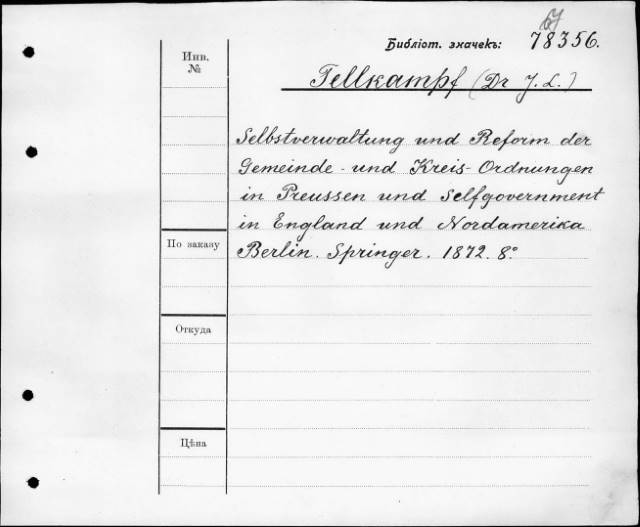 67
Библіот. значекъ: 78356.
Инв.
№
Tellkampf (Dr J. L.)
Selbstverwaltung und Reform der
Gemeinde- und Kreis-Ordnungen
in Preussen und Selfgovernment
in England und Nordamerika
Berlin. Springer. 1872. 8°
По заказу
Откуда
Цѣна